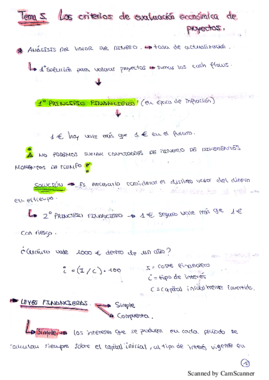 Tema 5. Los criterios de evaluación económica de
proyectos.
ANÁLISIS DEL VALOR DEL DINERO → tasa de actualización
1ª solución para valorar proyectos → sumar los cash flows.
1º PRINCIPIO FINANCIERO (en época de inflación)
1 € hoy vale más que 1 € en el futuro.
NO PODEMOS SUMAR CANTIDADES DE DINERO DE DIFERENTES
MOMENTOS DE TIEMPO
SOLUCIÓN → Es necesario considerar el distinto valor del dinero
en el tiempo.
2º PRINCIPIO FINANCIERO → 1 € seguro vale más que 1 €
con riesgo.
¿Cuánto vale 1000 € dentro de un año?
i = (I/C)·100
I = coste financiero
i = tipo de interés
C = capital inicialmente invertido.
LEYES FINANCIERAS
Simple
Compuesta.
Simple → los intereses que se producen en cada periodo se
calculan siempre sobre el capital inicial, al tipo de interés vigente en
Scanned by CamScanner